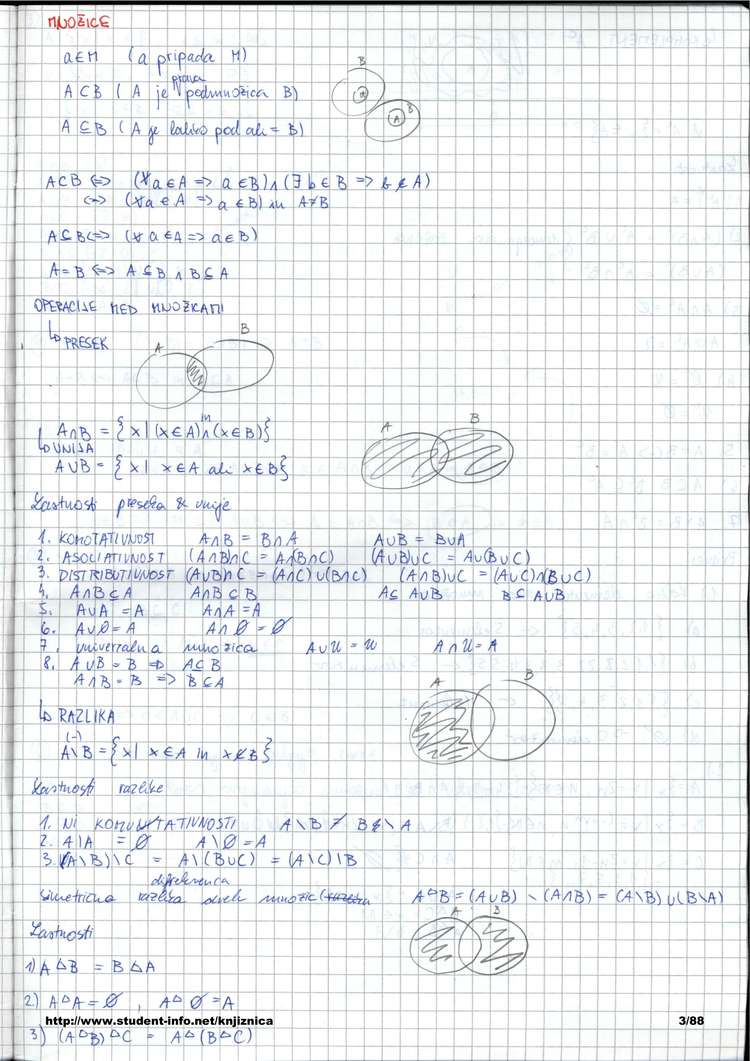 MNOŽICE
a∈M (a pripada M)
A ⊂ B (A je prava podmnožica B)
B
A ⊆ B (A je lahko pod ali = B)
B
A
A⊂B <=> (∀a∈A => a∈B)∧(∃b∈B => b∉A)
<=> (∀a∈A => a∈B) in A≠B
A⊆B <=> (∀a∈A => a∈B)
A=B <=> A⊆B ∧ B⊆A
OPERACIJE MED MNOŽICAMI
↳ PRESEK
A B
A∩B = {x | (x∈A) in ∧ (x∈B)}
↳ UNIJA
A∪B = {x | x∈A ali x∈B}
A B
Lastnosti preseka & unije
1. KOMOTATIVNOST A∩B = B∩A A∪B = B∪A
2. ASOCIATIVNOST (A∩B)∩C = A∩(B∩C) (A∪B)∪C = A∪(B∪C)
3. DISTRIBUTIVNOST (A∪B)∩C = (A∩C)∪(B∩C) (A∩B)∪C = (A∪C)∩(B∪C)
4. A∩B⊆A A∩B⊆B A⊆A∪B B⊆A∪B
5. A∪A = A A∩A = A
6. A∪∅ = A A∩∅ = ∅
7. univerzalna množica A∪U = U A∩U = A
8. A∪B = B => A⊆B
A∩B = B => B⊆A
A B
↳ RAZLIKA
(-)
A\B = {x | x∈A in x∉B}
Lastnosti razlike
1. NI KOMUTATIVNOSTI A\B ≠ B\A
2. A\A = ∅ A\∅ = A
3. (A\B)\C = A\(B∪C) = (A\C)\B
diferenca
Simetrična razlika dveh množic A△B = (A∪B) \ (A∩B) = (A\B)∪(B\A)
A B
Lastnosti
1) A△B = B△A
2) A△A = ∅, A△∅ = A
http://www.student-info.net/knjiznica 3/88
3) (A△B)△C = A△(B△C)